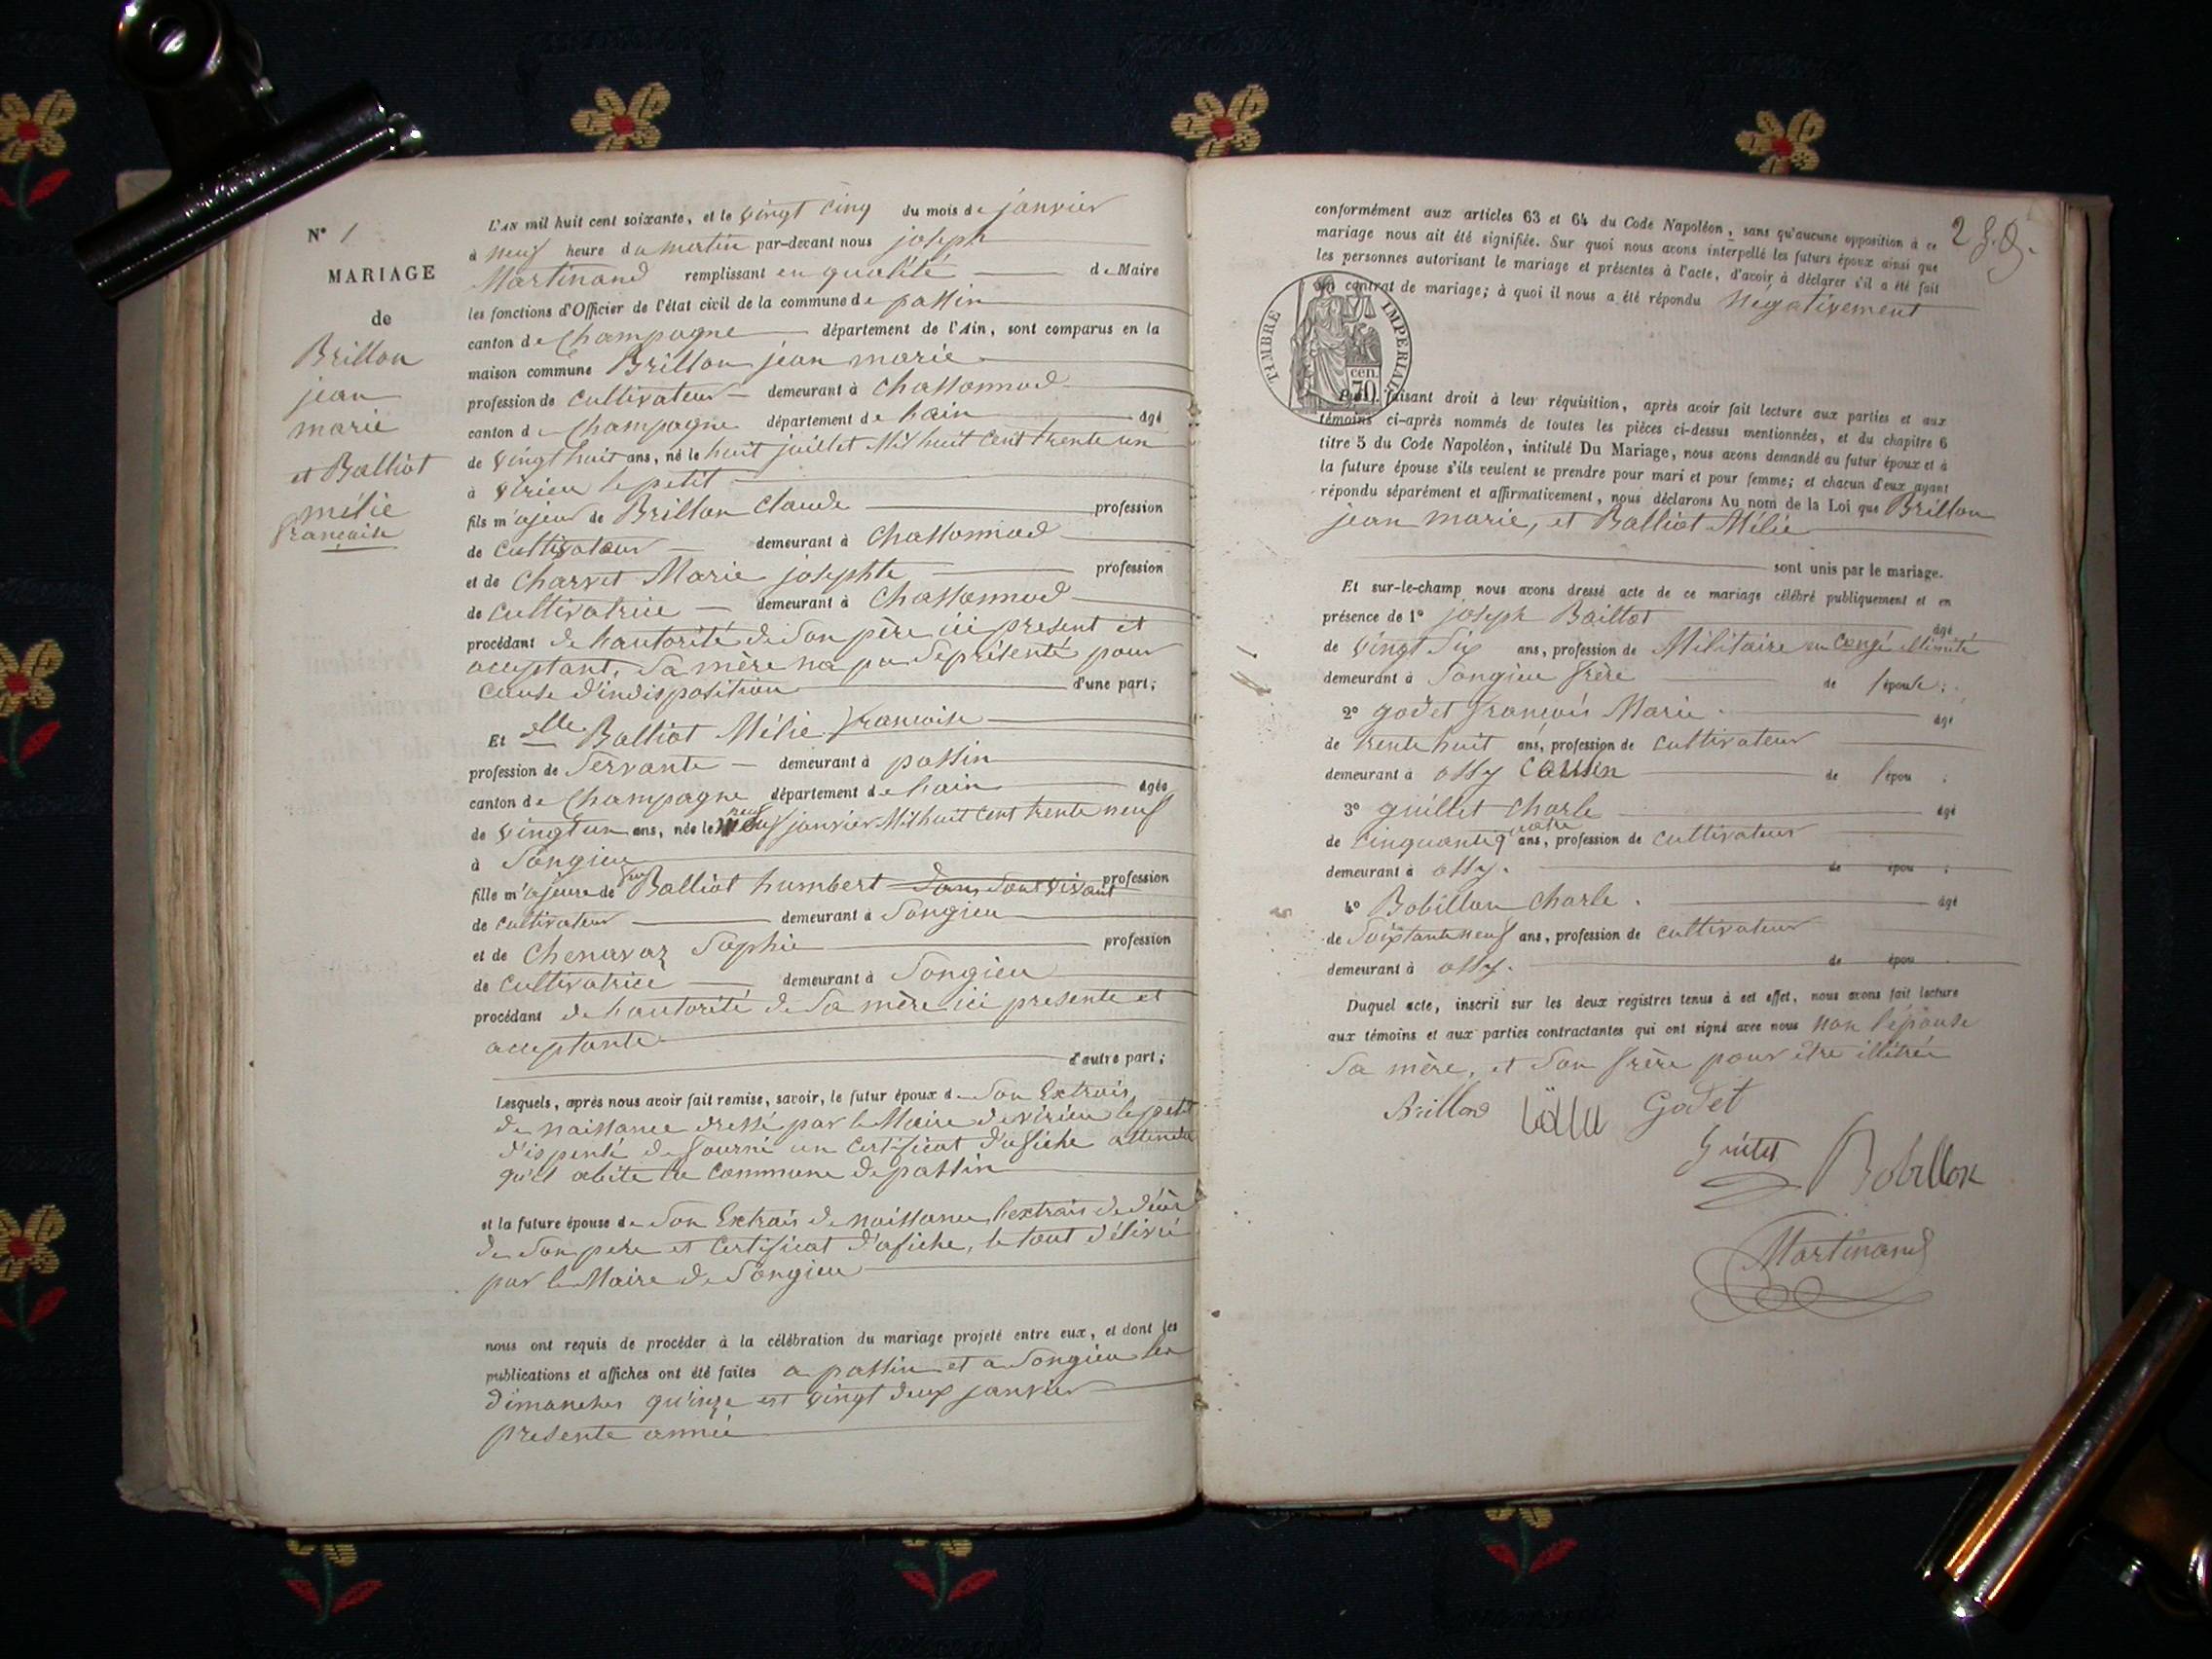 N° 1
MARIAGE
de
Brillon
jean
marie
et Balliot
mélie
françoise
L'AN mil huit cent soixante, et le vingt cinq du mois de janvier
à neuf heure du matin par-devant nous joseph
Martinand remplissant en qualité de Maire
les fonctions d'Officier de l'état civil de la commune de passin
canton de Champagne département de l'Ain, sont comparus en la
maison commune Brillon jean marie
profession de cultivateur demeurant à Chassonnod
canton de Champagne département de hain âgé
de vingt huit ans, né le huit juillet Mil huit cent trente un
à virieu le petit
fils majeur de Brillon Claude profession
de cultivateur demeurant à Chassonnod
et de Charvet Marie josephte profession
de cultivatrice demeurant à Chassonnod
procédant de hautorité de son père ici present et
acceptant, sa mère na pu se présenté pour
cause d'indisposition d'une part;
Et elle Balliot Mélie françoise
profession de Servante demeurant à passin
canton de Champagne département de hain âgée
de vingt un ans, née le neuf janvier Mil huit cent trente neuf
à Songieu
fille majeure de feu Balliot humbert dans son vivant profession
de cultivateur demeurant à Songieu
et de Chenavaz Sophie profession
de cultivatrice demeurant à Songieu
procédant de hautorité de sa mère ici presente et
acceptante
d'autre part;
Lesquels, après nous avoir fait remise, savoir, le futur époux de son Extrais
de naissance dressé par le Maire de virieu le petit
d'ispensé de fourni un Certificat d'afiche attendu
qu'il abite la commune de passin
et la future épouse de son Extrais de naissance, l'extrais de décès
de son pere et Certificat d'afiche, le tout délivré
par le Maire de Songieu
nous ont requis de procéder à la célébration du mariage projeté entre eux, et dont les
publications et affiches ont été faites a passin et a Songieu les
dimanches quinze et vingt deux janvier
presente année
2
conformément aux articles 63 et 64 du Code Napoléon, sans qu'aucune opposition à ce
mariage nous ait été signifiée. Sur quoi nous avons interpellé les futurs époux ainsi que
les personnes autorisant le mariage et présentes à l'acte, d'avoir à déclarer s'il a été fait
un contrat de mariage; à quoi il nous a été répondu Négativement
TIMBRE IMPÉRIAL
cen.
70
faisant droit à leur réquisition, après avoir fait lecture aux parties et aux
témoins ci-après nommés de toutes les pièces ci-dessus mentionnées, et du chapitre 6
titre 5 du Code Napoléon, intitulé Du Mariage, nous avons demandé au futur époux et à
la future épouse s'ils veulent se prendre pour mari et pour femme; et chacun d'eux ayant
répondu séparément et affirmativement, nous déclarons Au nom de la Loi que Brillon
jean marie, et Balliot Mélie
sont unis par le mariage.
Et sur-le-champ nous avons dressé acte de ce mariage célébré publiquement et en
présence de 1° joseph Baillot âgé
de vingt six ans, profession de Militaire en congé illimité
demeurant à Songieu frère de l'épouse;
2° godet françois Marie âgé
de trente huit ans, profession de cultivateur
demeurant à ossy Cousin de l'épou ;
3° guillet Charle âgé
de cinquante quatre ans, profession de cultivateur
demeurant à ossy. de épou ;
4° Bobillon Charle. âgé
de Soixante neuf ans, profession de cultivateur
demeurant à ossy. de épou .
Duquel acte, inscrit sur les deux registres tenus à cet effet, nous avons fait lecture
aux témoins et aux parties contractantes qui ont signé avec nous non l'épouse
sa mère, et son frère pour être illétrée
Brillon Godet
Bobillon
Martinand